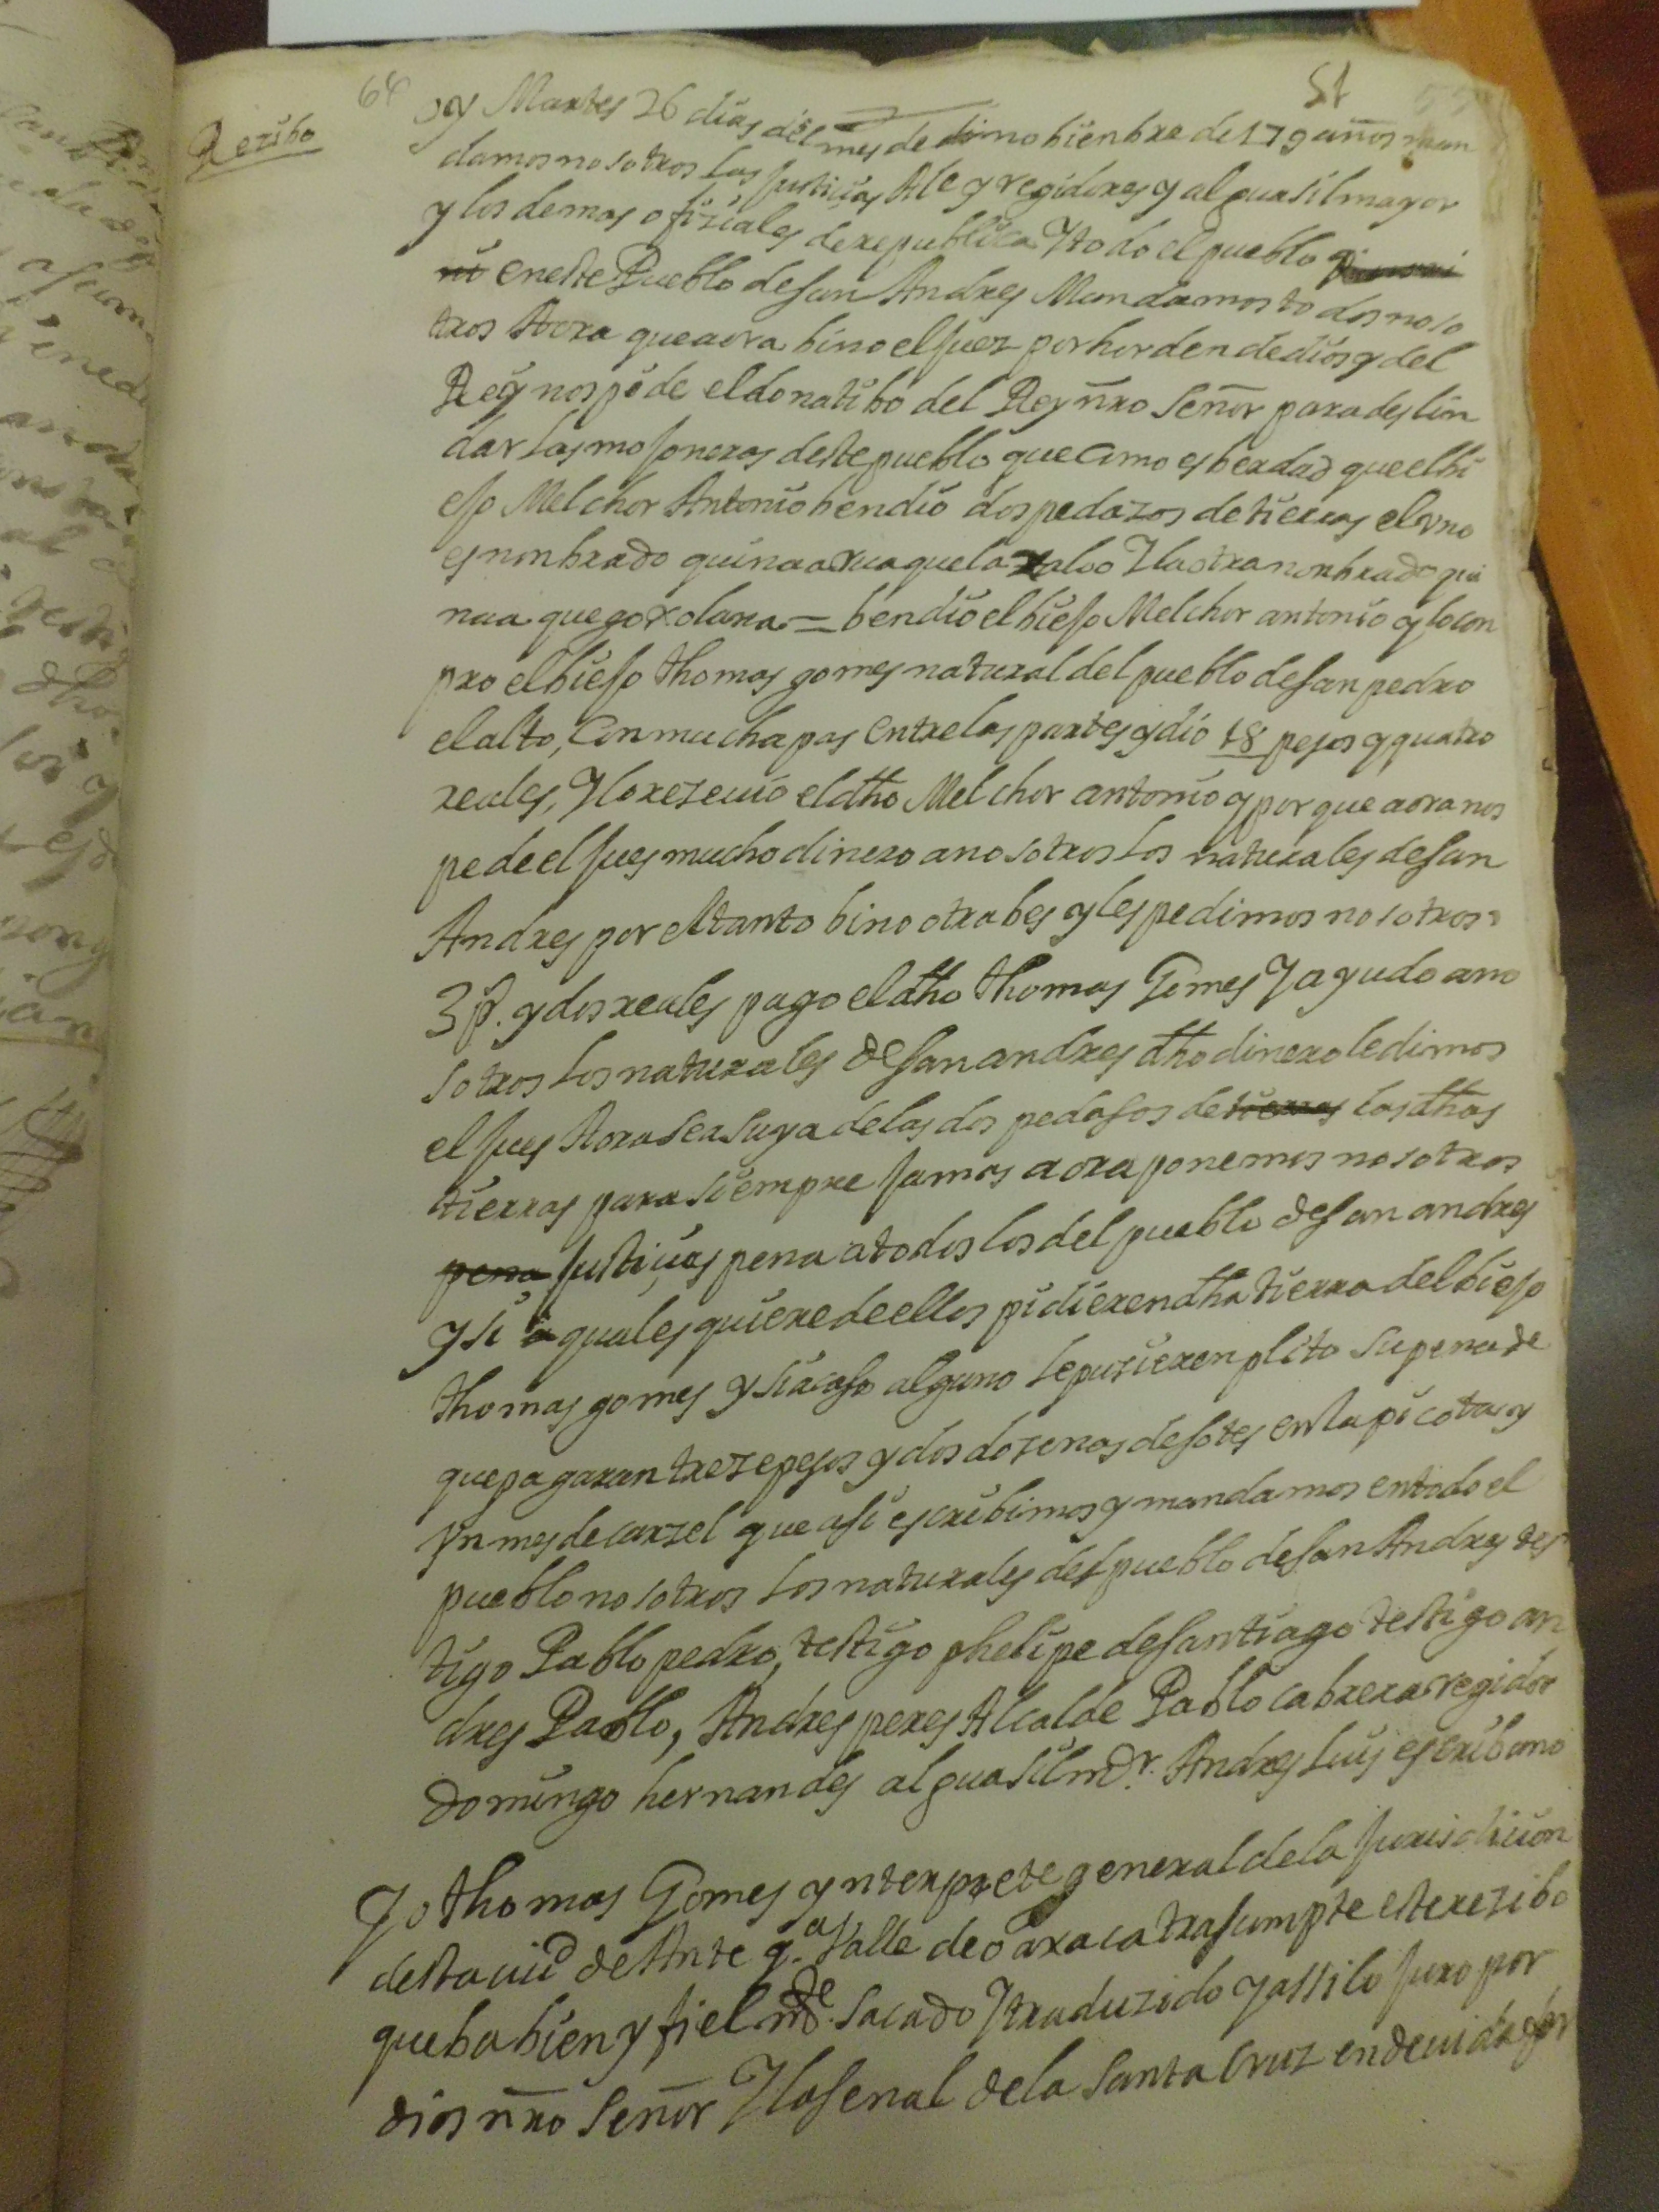 64
51
Rezibo
oy Martes 26 dias del mes de dimobienbre de 179 años man
damos nosotros las justiçias Alc y regidores y alguasil mayor
y los demas ofiziales de republica Y todo el pueblo
en este Pueblo de san Andres Mandamos todos noso
tros Aora que aora bino el Juez por horden de dios y del
Rey nos pide el donatibo del Rey ñro Señor para deslin
dar las mojoneras deste pueblo que como es berdad que el bi
ejo Melchor Antonio bendio dos pedazos de tierras el vno
es nonbrado quinaa xuaquela xaloo Y la otra nonbrado qui
naa quegoxolana = bendio el biejo Melchor antonio y lo con
pro el biejo thomas gomes natural del pueblo de san pedro
el alto, Con mucha pas Entre las partes y dio 18 pesos y quatro
reales, Y lo rezeuio el dho Melchor antonio y por que aora nos
pede el Jues mucho dinero a nosotros los naturales de san
Andres por el tanto bino otra bes y les pedimos nosotros
3 ps. y dos reales pago el dho thomas Gomes Y ayudo a no
sotros los naturales de san andres dho dinero le dimos
el Jues Aora sea suya de las dos pedasos de tierras las dhas
tierras para siempre Jamas aora ponemos nosotros
pena justiçias pena a todos los del pueblo de san andres
y si a quales quiere de ellos pidieren dha tierra del biejo
thomas gomes y si acaso alguno le pusieren plito su pena de
que pagaran treze pesos y dos dozenas de sotes en la picota y
vn mes de carzel que asi escribimos y mandamos en todo el
pueblo nosotros los naturales del pueblo de san Andres tes
tigo Pablo pedro, testigo phelipe de santiago testigo an
dres Pablo, Andres peres Alcalde Pablo cabrera regidor
domingo hernandes alguasil mr. Andres luis escribano
Yo thomas Gomes ynterprete general de la Jurisdicion
desta ciud de Anteqa. Valle de oaxaca trasumpte este rezibo
que ba bien y fielmde. sacado Y traduzido y assi lo juro por
dios ñro Señor Y la señal de la santa Cruz en deuida for